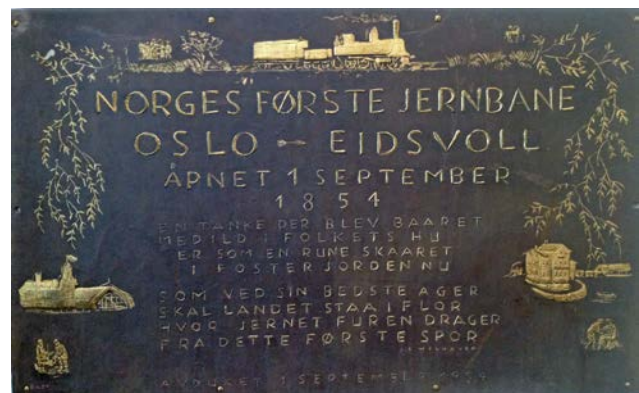 NORGES FØRSTE JERNBANE
OSLO – EIDSVOLL
ÅPNET 1 SEPTEMBER
1854
EN TANKE DER BLEV BAARET
MED ILD I FOLKETS HU
ER SOM EN RUNE SKAARET
I FOSTERJORDEN NU
SOM VED SIN BEDSTE AGER
SKAL LANDET STAA I FLOR
HVOR JERNET FUREN DRAGER
FRA DETTE FØRSTE SPOR
1 SEPTEMBER